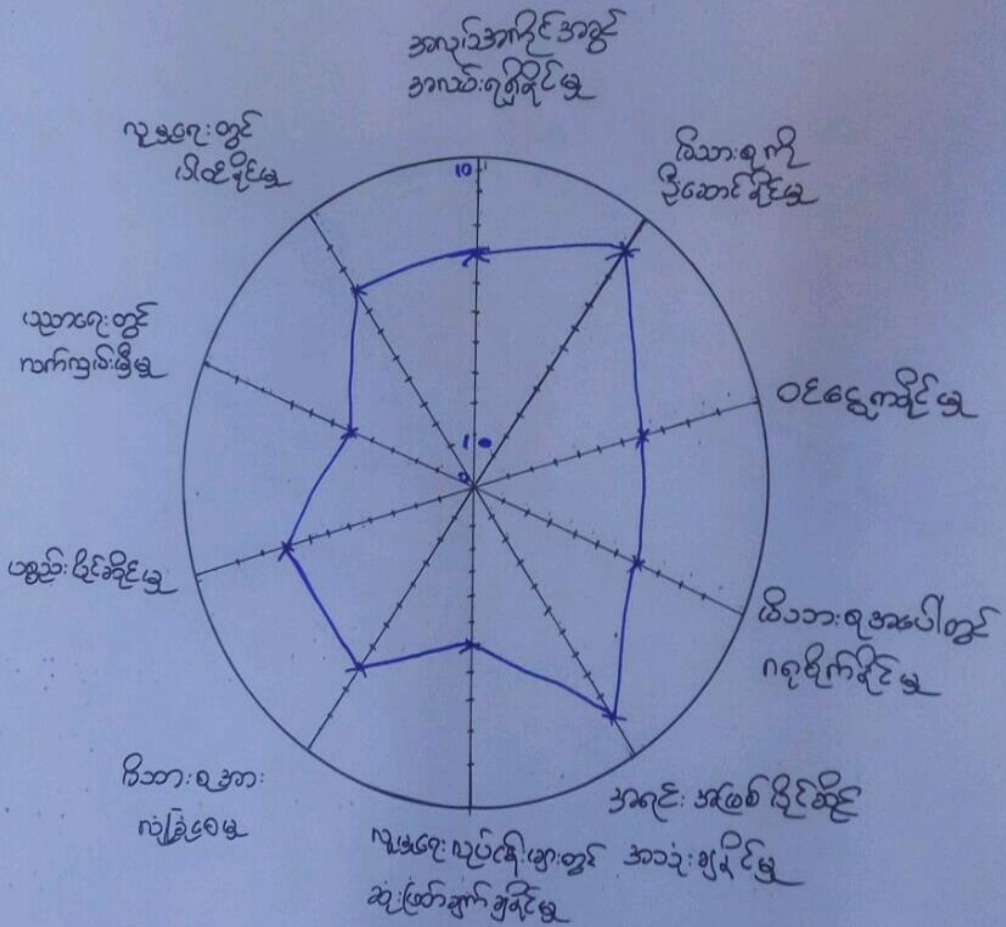 အလုပ်အကိုင်အခွင့်
အလမ်းရရှိနိုင်မှု
မိသားစုကို
ဦးဆောင်နိုင်မှု
ဝင်ငွေ နိုင်မှု
မိသားစုအပေါ်တွင်
ဂရုစိုက်နိုင်မှု
အရင်းအမြစ်ပိုင်ဆိုင်
အသုံးချနိုင်မှု
လူမှုရေးလုပ်ငန်းများတွင်
ဆုံးဖြတ်ချက်ချနိုင်မှု
မိသားစုအား
လုံခြုံစေမှု
ပစ္စည်းပိုင်ဆိုင်မှု
ပညာရေးတွင်
လက်လှမ်းမှီမှု
လူမှုရေးတွင်
ပါဝင်နိုင်မှု
10
1
0